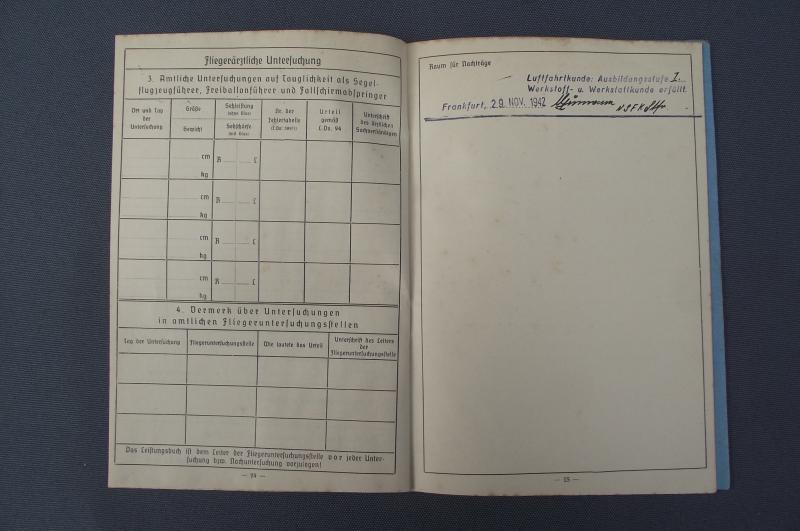 Fliegerärztliche Untersuchung
3. Amtliche Untersuchungen auf Tauglichkeit als Segel-
flugzeugführer, Freiballonführer und Fallschirmabspringer
Ort und Tag
der
Untersuchung
Größe
Gewicht
Sehleistung
(ohne Glas)
Sehschärfe
(mit Glas)
Nr. der
Fehlertabelle
Urteil
gemäß
L.Dv. 94
Unterschrift
des ärztlichen
Sachverständigen
cm
R ........ L
kg
cm
R ........ L
kg
cm
R ........ L
kg
cm
R ........ L
kg
4. Vermerk über Untersuchungen
in amtlichen Fliegeruntersuchungsstellen
Tag der Untersuchung
Fliegeruntersuchungsstelle
Wie lautete das Urteil
Unterschrift des Leiters
der
Fliegeruntersuchungsstelle
Das Leistungsbuch ist dem Leiter der Fliegeruntersuchungsstelle vor jeder Unter-
suchung bzw. Nachuntersuchung vorzulegen!
— 24 —
Raum für Nachträge
Luftfahrtkunde: Ausbildungsstufe I.
Werkstoff- u. Werkstattkunde erfüllt.
Frankfurt, 29. NOV. 1942
— 25 —